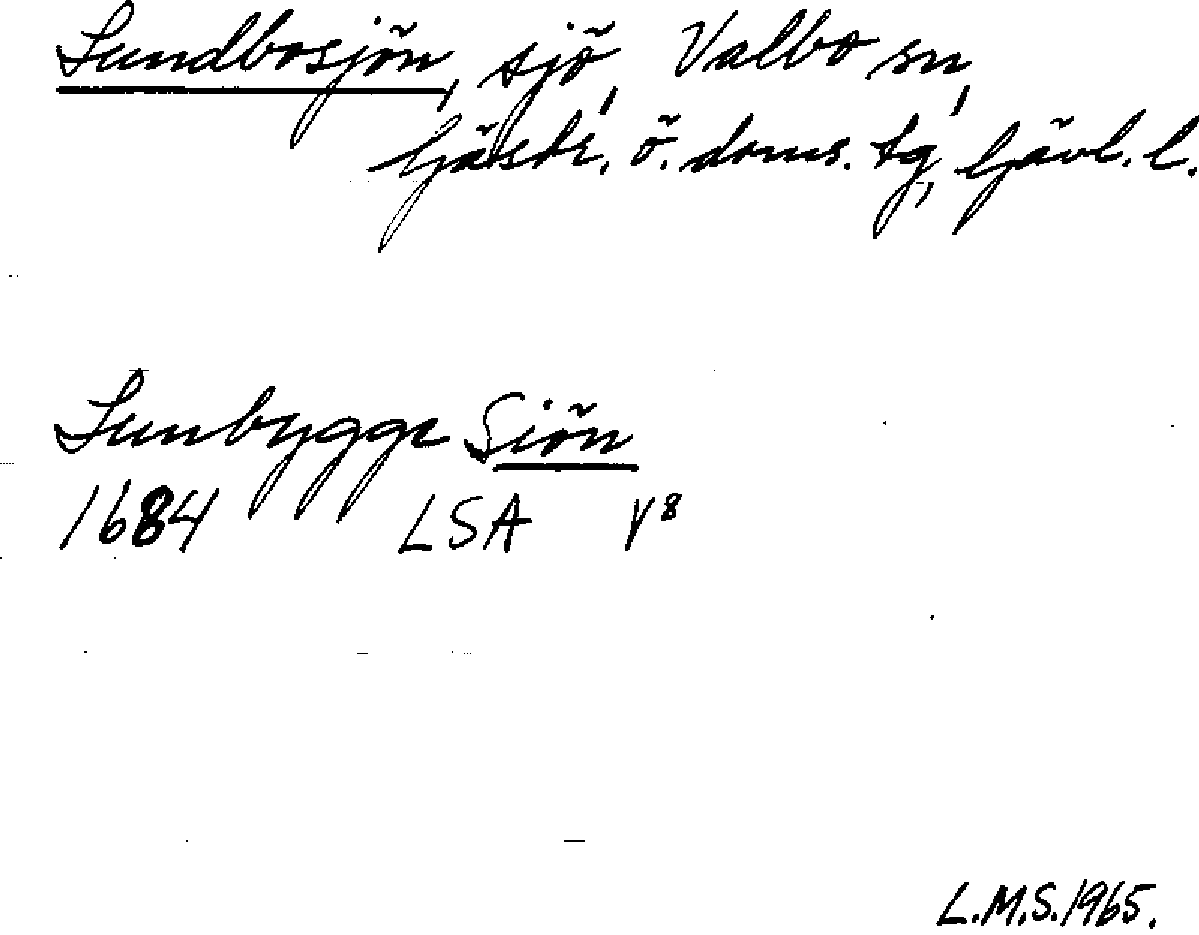 Sundbosjön, sjö, Valbo sn,
Gästr. ö. doms. tg, Gävl. l.
Sunbygge Siön
1684 LSA V⁸
L.M.S. 1965.